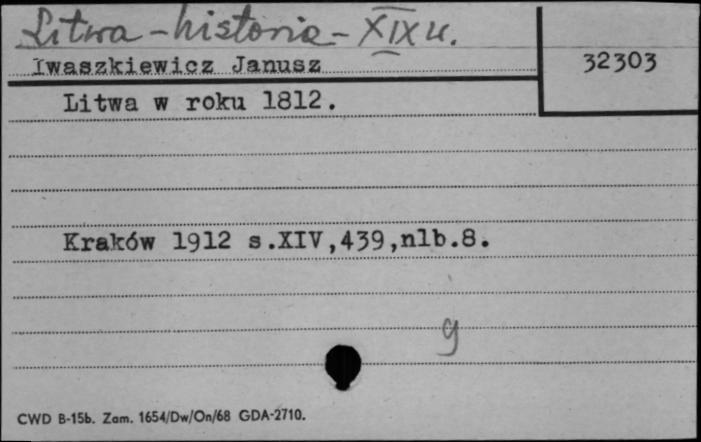 Litwa - historia - XIX w.
Iwaszkiewicz Janusz
32303
Litwa w roku 1812.
Kraków 1912 s.XIV,439,nlb.8.
g
CWD B-15b. Zam. 1654/Dw/On/68 GDA-2710.